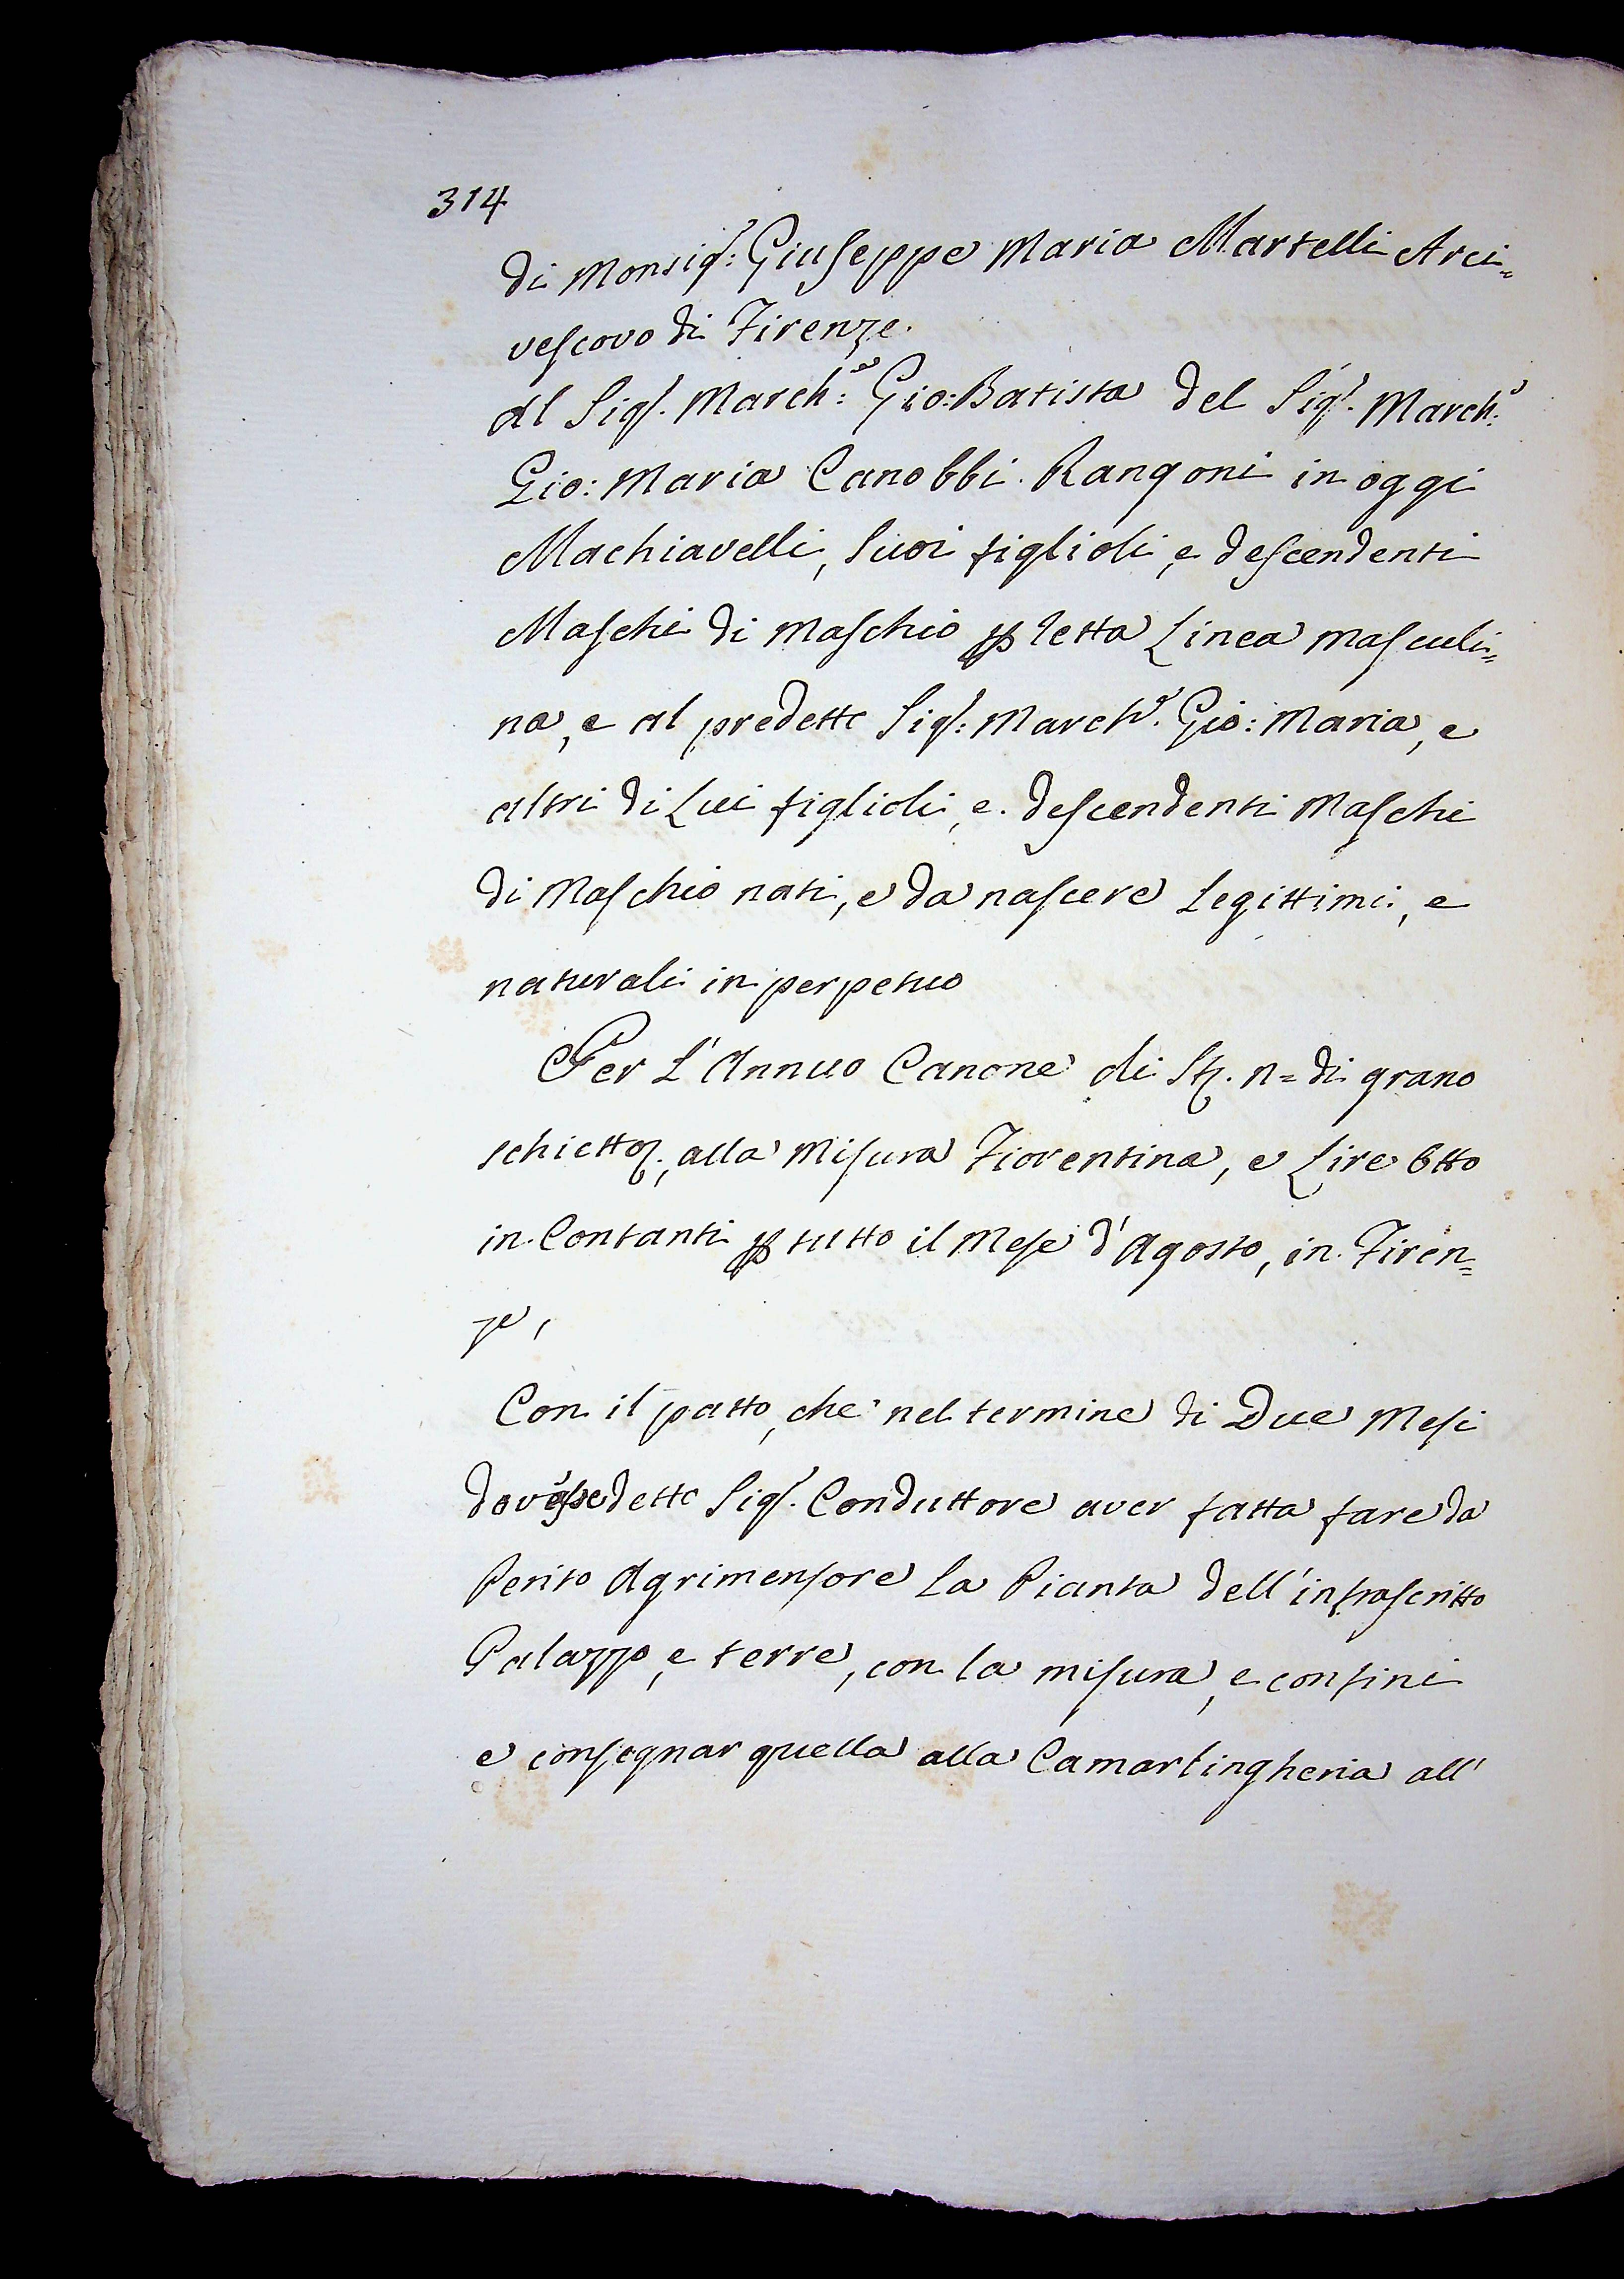 314
di Monsig.r: Giuseppe Maria Martelli Arci=
vescovo di Firenze.
al Sig.r March:e Gio: Batista del Sig.r March:e
Gio: Maria Canobbi Rangoni in oggi
Machiavelli, suoi figlioli, e descendenti
Maschi di Maschio p retta Linea masculi=
na, e al predetto Sig.r: March.e Gio: Maria, e
altri di Lui figlioli, e descendenti Maschi
di Maschio nati, e da nascere Legittimi, e
naturali in perpetuo
Per L'Annuo Canone di n= di grano
schietto, alla Misura Fiorentina, e Lire Otto
in Contanti p tutto il Mese d'Agosto, in Firen=
ze,
Con il patto, che nel termine di Due Mesi
dovesse detto Sig.r Conduttore aver fatta fare da
Perito Agrimensore La Pianta dell'infrascritto
Palazzo, e terre, con la misura, e confini
e consegnar quella alla Camarlingheria all'